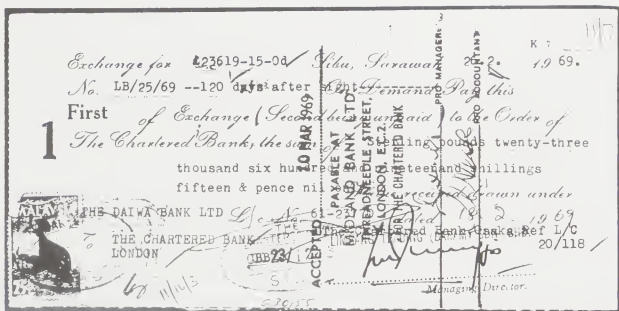 11/17
K 7
Exchange for £23619-15-0d Sibu, Sarawak 20. 2. 1969.
No. LB/25/69 --120 days after sight Demand Pay this
First of Exchange (Second being unpaid) to the Order of
1
The Chartered Bank, the sum of Sterling pounds twenty-three
thousand six hundred and nineteen and shillings
fifteen & pence nil received drawn under
THE DAIWA BANK LTD L/C No 61-237 dated 18. 2. 1969
The Chartered Bank Osaka Ref L/C
20/118
To THE CHARTERED BANK
LONDON
Managing Director.
ACCEPTED 10 MAR 1969
PAYABLE AT
MIDLAND BANK LTD
THREADNEEDLE STREET,
LONDON, E.C.2.
FOR THE CHARTERED BANK
PRO MANAGER
PRO ACCOUNTANT
MALAYSIA
11/10/3